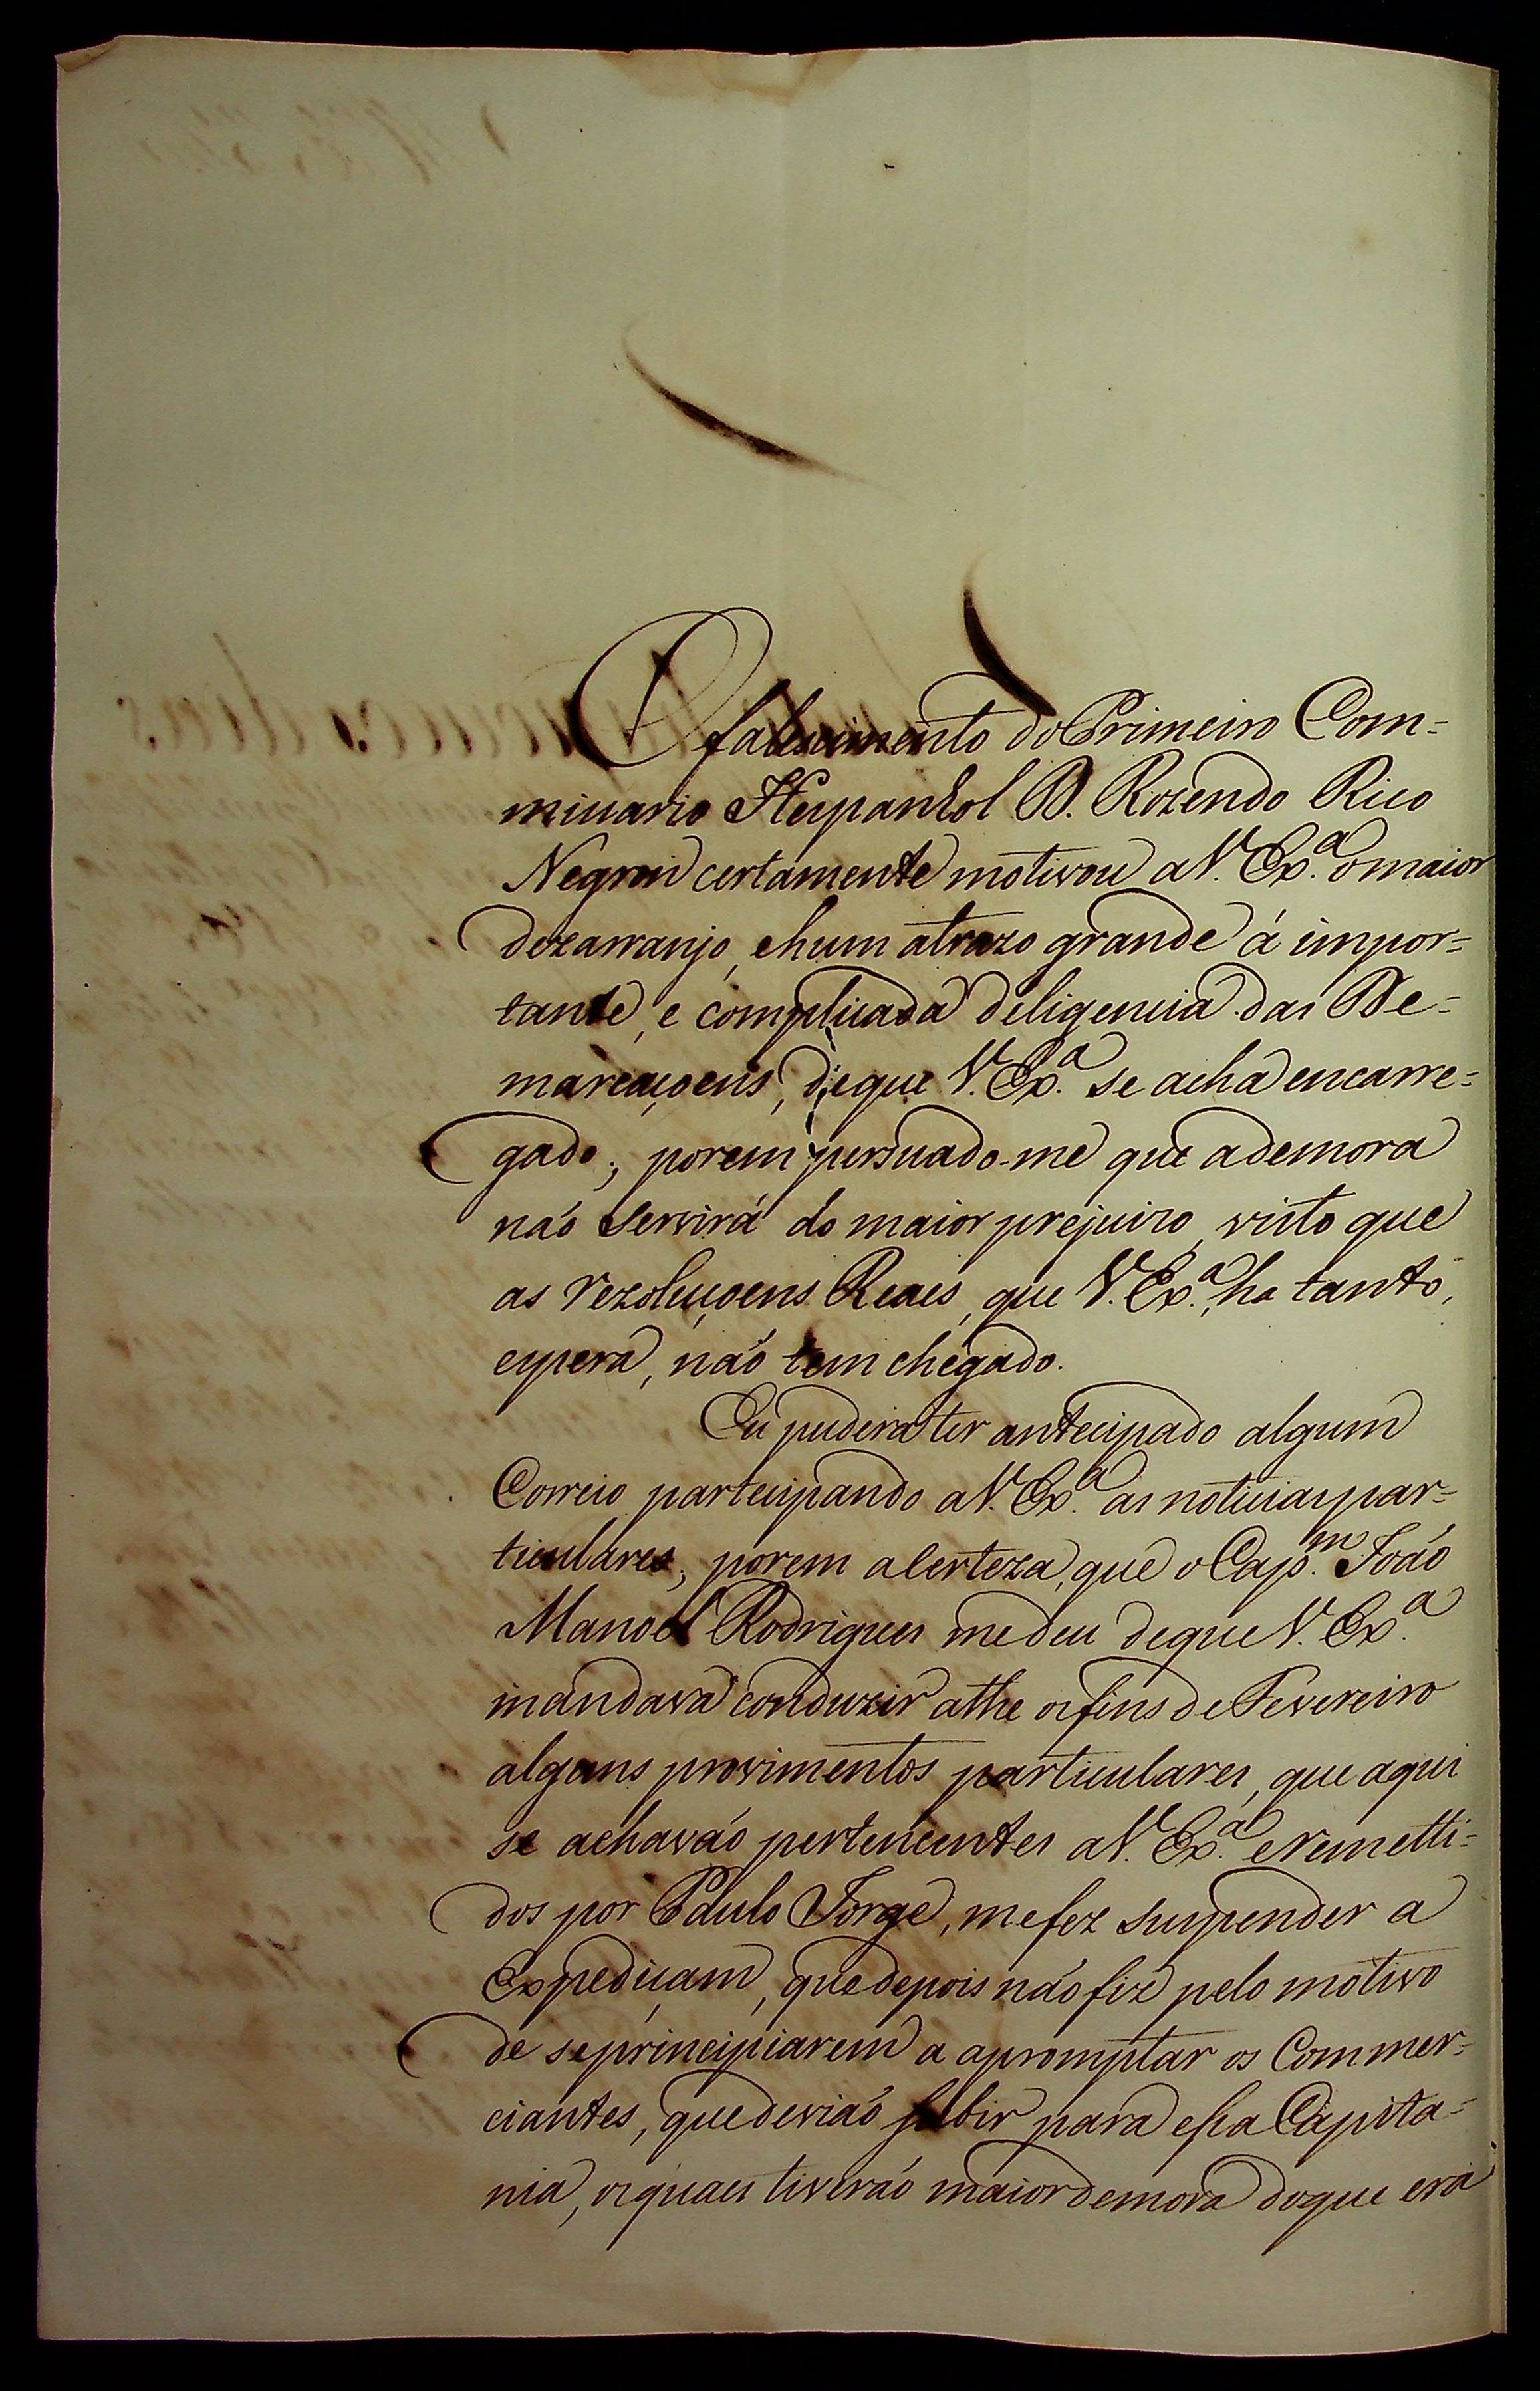 O falescimento do Primeiro Com=
missario Hespanhol D. Rozendo Rico
Negron certamente motivou a V. Ex.ª o maior
dezarranjo, e hum atrazo grande á impor=
tante, e complicada deligencia das De=
marcaçoens, de que V. Ex.ª se acha encarre=
gado; porem persuado-me que a demora
não servirá do maior prejuizo, visto que
as rezoluçoens Reaes, que V. Ex.ª, ha tanto,
espera, não tem chegado.
Eu pudera ter antecipado algum
Correio partecipando a V. Ex.ª as noticias par=
ticulares, porem a certeza, que o Cap.m João
Manoel Rodrigues me deu de que V. Ex.ª
mandava conduzir athe os fins de Fevereiro
alguns provimentos particulares, que aqui
se achavão pertencentes a V. Ex.ª e remetti=
dos por Paulo Jorge, me fez suspender a
Expediçam, que depois não fiz pelo motivo
de se principiarem a apromptar os Commer=
ciantes, que devião subir para essa Capita=
nia, os quaes tiverão maior demora do que era